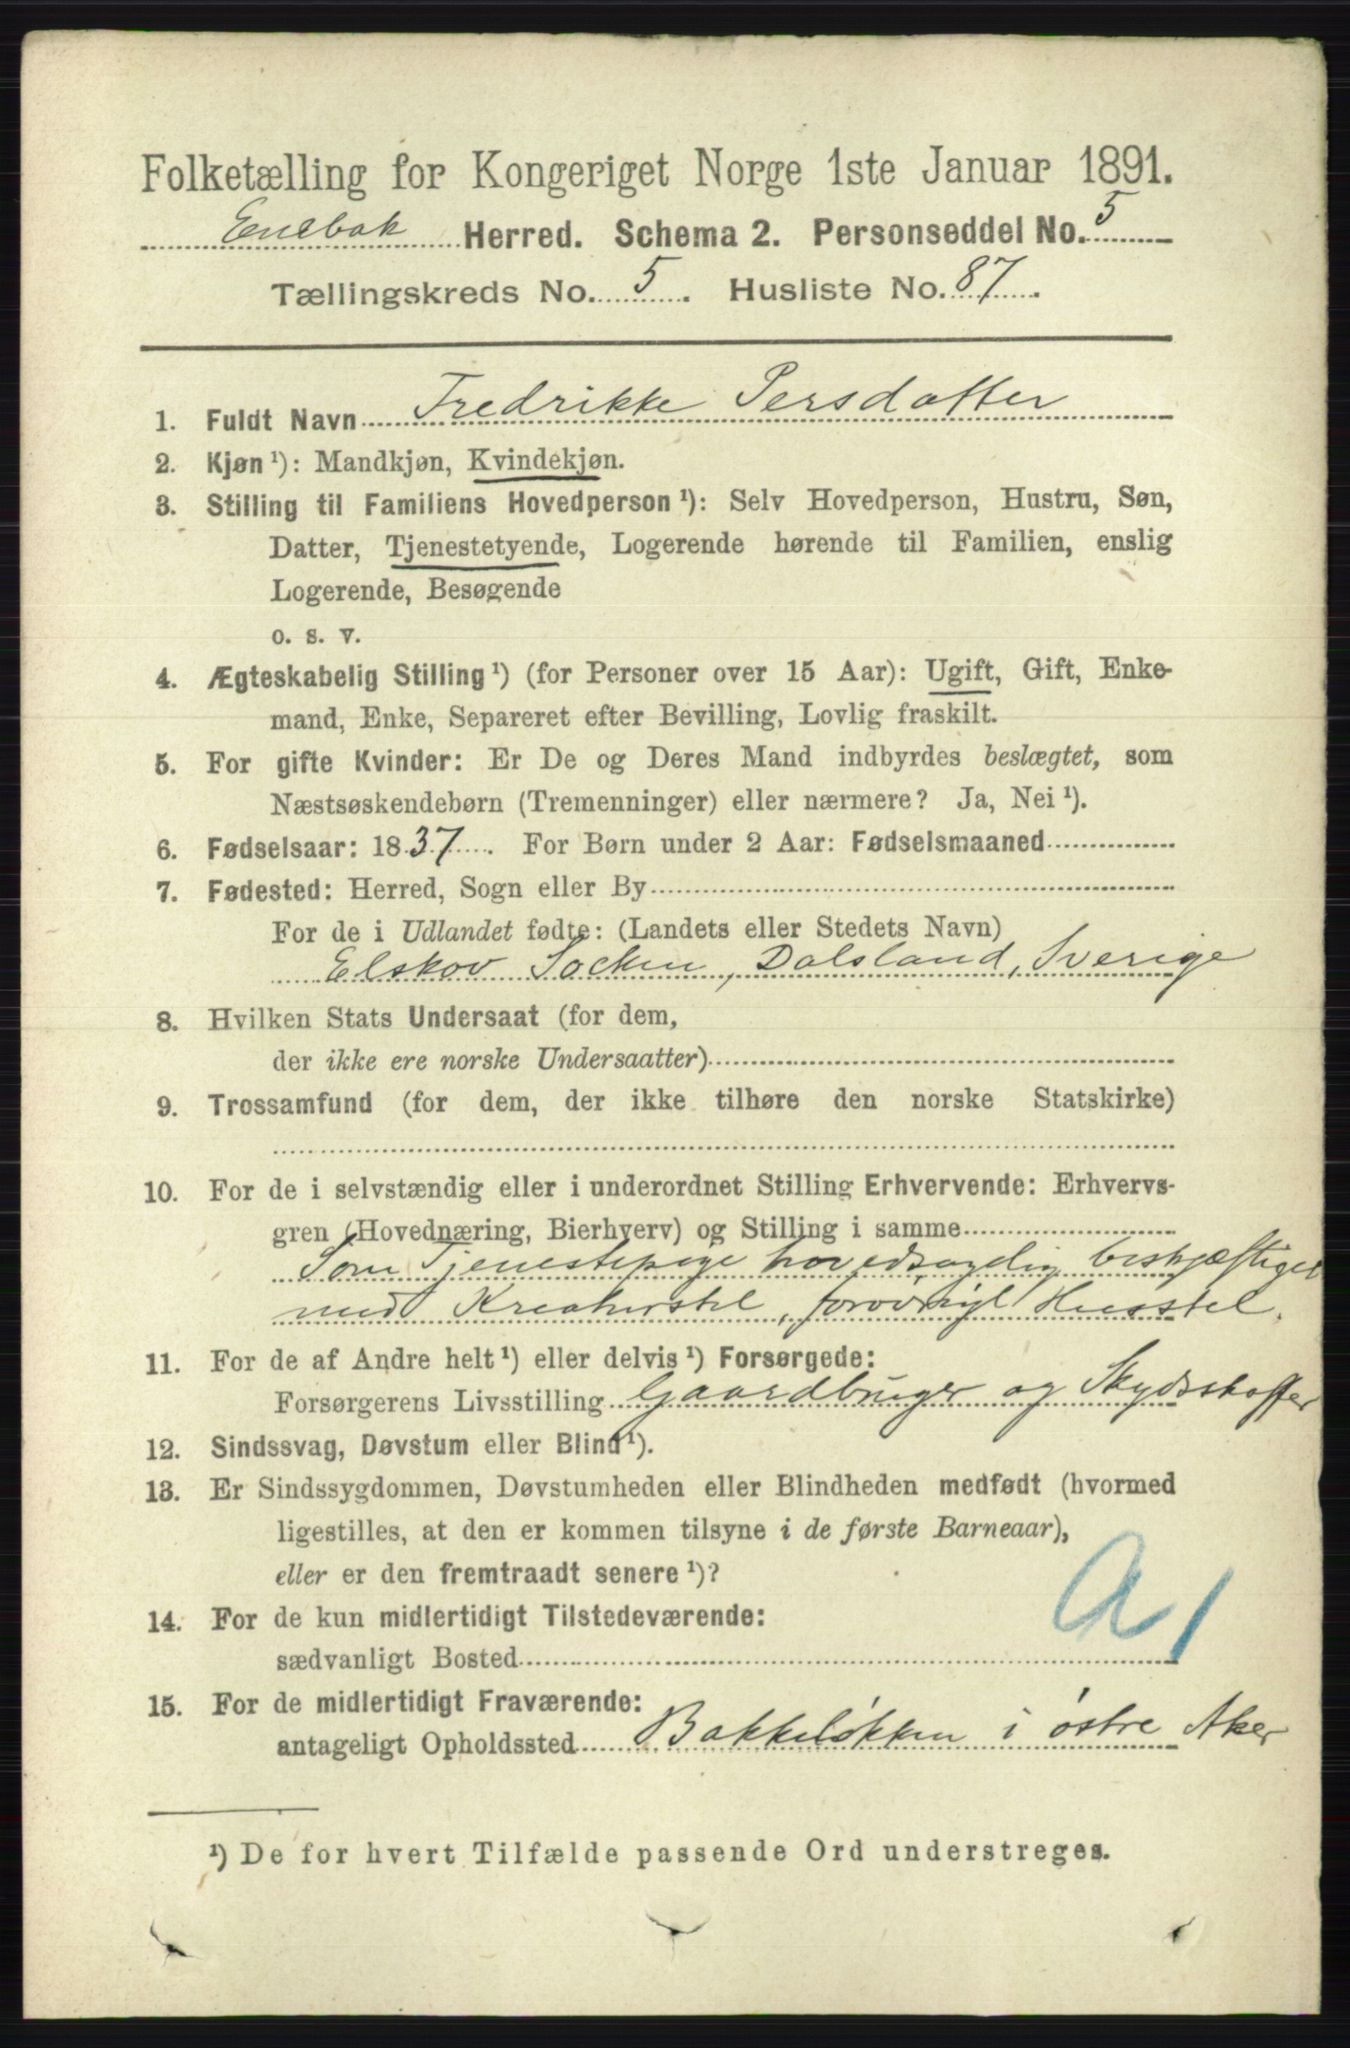 Folketælling for Kongeriget Norge 1ste Januar 1891.
Enebak Herred. Schema 2. Personseddel No. 5
Tællingskreds No. 5. Husliste No. 87.
1. Fuldt Navn Fredrikke Persdatter
2. Kjøn¹): Mandkjøn, Kvindekjøn.
3. Stilling til Familiens Hovedperson¹): Selv Hovedperson, Hustru, Søn,
Datter, Tjenestetyende, Logerende hørende til Familien, enslig
Logerende, Besøgende
o. s. v.
4. Ægteskabelig Stilling¹) (for Personer over 15 Aar): Ugift, Gift, Enke-
mand, Enke, Separeret efter Bevilling, Lovlig fraskilt.
5. For gifte Kvinder: Er De og Deres Mand indbyrdes beslægtet, som
Næstsøskendebørn (Tremenninger) eller nærmere? Ja, Nei¹).
6. Fødselsaar: 1837. For Børn under 2 Aar: Fødselsmaaned
7. Fødested: Herred, Sogn eller By
For de i Udlandet fødte: (Landets eller Stedets Navn)
Elskov Socken, Dalsland, Sverige
8. Hvilken Stats Undersaat (for dem,
der ikke ere norske Undersaatter)
9. Trossamfund (for dem, der ikke tilhøre den norske Statskirke)
10. For de i selvstændig eller i underordnet Stilling Erhvervende: Erhvervs-
gren (Hovednæring, Bierhverv) og Stilling i samme
Som Tjenestepige hovedsagelig beskjæftiget
med Kreaturstel, forøvrigt Husstel.
11. For de af Andre helt¹) eller delvis¹) Forsørgede:
Forsørgerens Livsstilling Gaardbruger og Skydsskaffer
12. Sindssvag, Døvstum eller Blind¹).
13. Er Sindssygdommen, Døvstumheden eller Blindheden medfødt (hvormed
ligestilles, at den er kommen tilsyne i de første Barneaar),
eller er den fremtraadt senere¹)?
A 1
14. For de kun midlertidigt Tilstedeværende:
sædvanligt Bosted
15. For de midlertidigt Fraværende:
antageligt Opholdssted Bakkeløkken i østre Aker
¹) De for hvert Tilfælde passende Ord understreges.